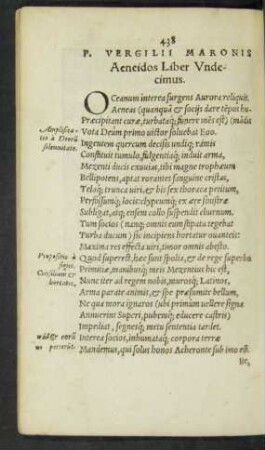 438
P. VERGILII MARONIS
Aeneidos Liber Vnde-
cimus.
OCeanum interea surgens Aurora reliquit.
Aeneas (quanquā & socijs dare tēpus hu-
Præcipitant curæ, turbataq; funere mēs est) (mādis
Vota Deûm primo uictor soluebat Eoo.
Ingentem quercum decisis undiq; ramis
Constituit tumulo, fulgentiaq; induit arma,
Mezenti ducis exuuias, tibi magne trophæum
Bellipotens, aptat rorantes sanguine cristas,
Telaq; trunca uiri, & bis sex thoraca petitum,
Perfossumq; locis: clypeumq; ex ære sinistræ
Subligat, atq; ensem collo suspendit eburnum.
Tum socios (namq; omnis eum stipata tegebat
Turba ducum) sic incipiens hortatur ouanteis:
Maxima res effecta uiri, timor omnis abesto.
Quod superest, hæc sunt spolia, & de rege superbo
Primitiæ, manibusq; meis Mezentius hic est,
Nunc iter ad regem nobis, murosq; Latinos,
Arma parate animis, & spe præsumite bellum,
Ne qua mora ignaros (ubi primum uellere signa
Annuerint Superi, pubemq; educere castris)
Impediat, segnesq; metu sententia tardet.
Interea socios, inhumataq; corpora terræ
Mandemus, qui solus honos Acheronte sub imo est.
Ite,
Amplifica-
tio à Deorū
solennitate.
Propositio à
signo.
Consilium et
hortatus.